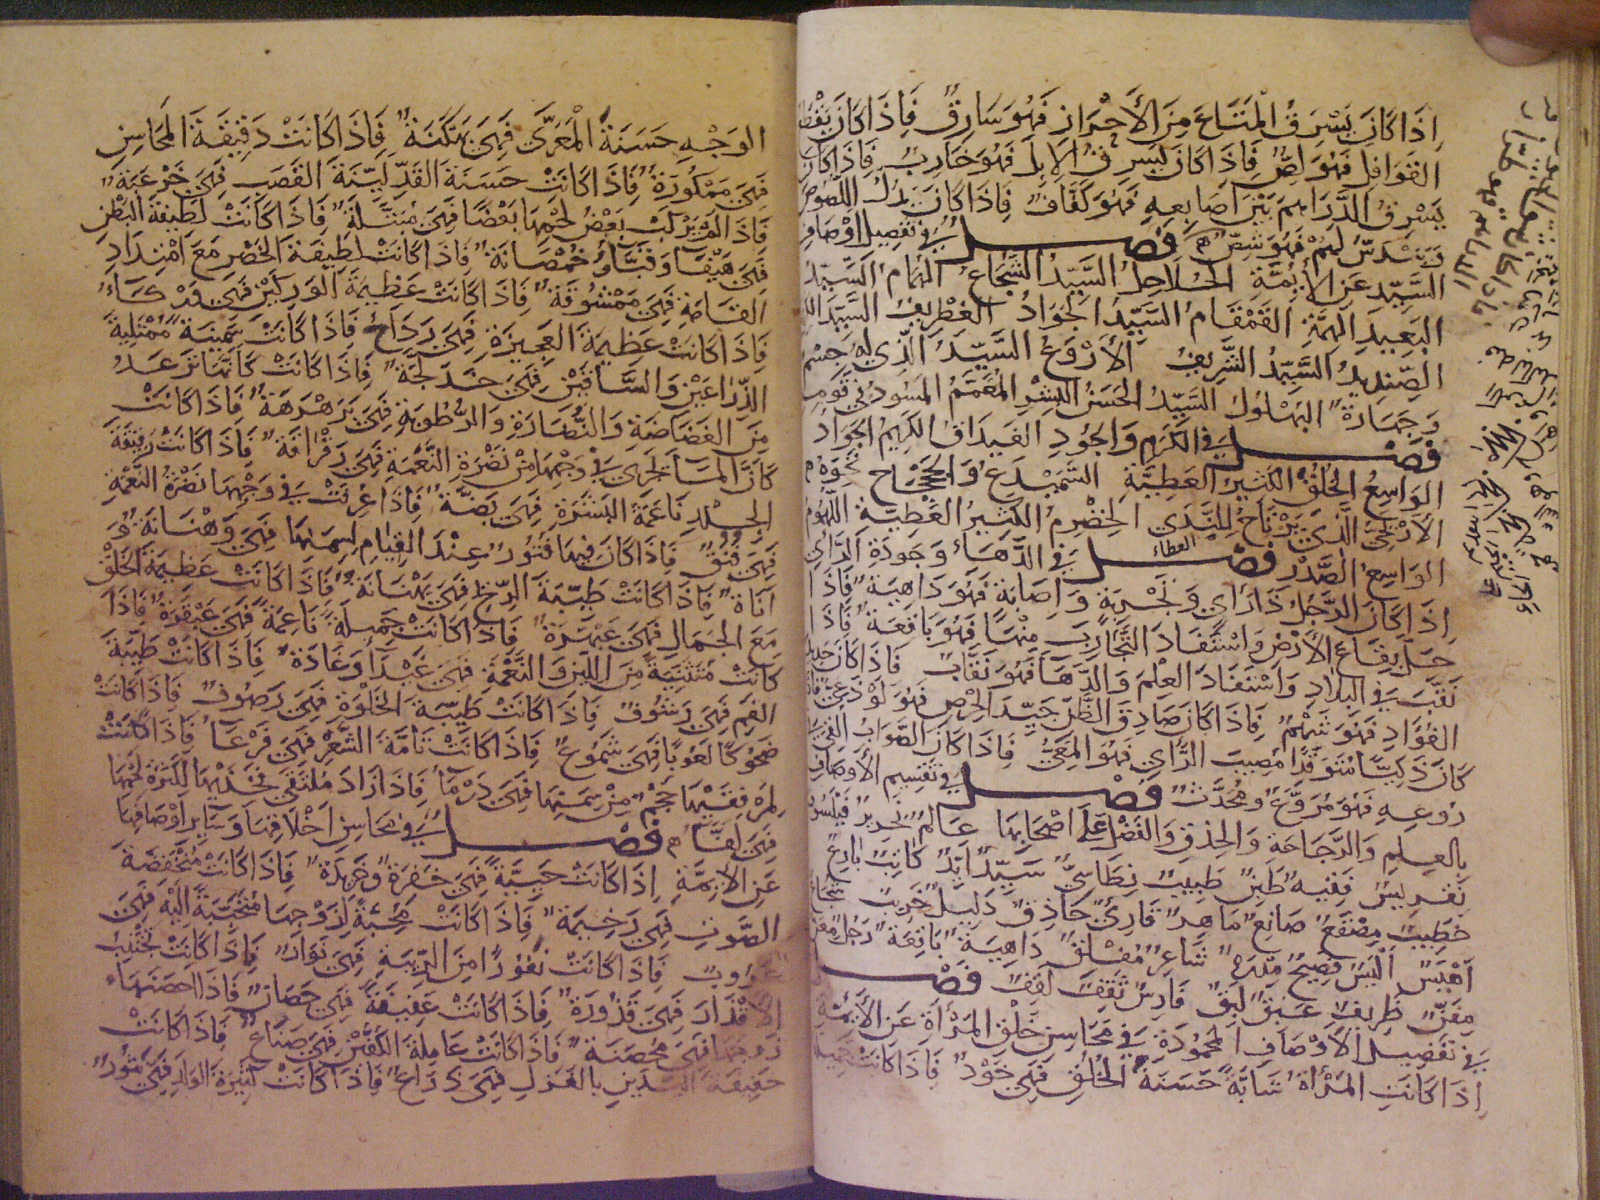 اِذَا كَانَ يَسْرِقُ الْمَتَاعَ مِنَ الأَحْرَازِ فَهُوَ سَارِقٌ فَاِذَا كَانَ يَقْطَعُ
القَوَافِلَ فَهُوَ لِصٌّ فَاِذَا كَانَ يَسْرِقُ الاِبِلَ فَهُوَ خَارِبٌ فَاِذَا كَانَ
يَسْرِقُ الدَّرَاهِمَ بَيْنَ اَصَابِعِهِ فَهُوَ كَفَّافٌ فَاِذَا كَانَ اللُّصُوصَ
لَهُمْ فَهُوَ شِصٌّ فصل في تفصيل اوصاف
السَّيِّدِ عَنِ الأَئِمَّةِ الحُلَاحِلُ السَّيِّدُ الشُّجَاعُ الهُمَامُ السَّيِّدُ
البَعِيدُ الهِمَّةِ القَمْقَامُ السَّيِّدُ الجَوَادُ الغِطْرِيفُ السَّيِّدُ
الصِّنْدِيدُ السَّيِّدُ الشَّرِيفُ الأَرْوَعُ السَّيِّدُ الَّذِي لَهُ جِسْمٌ
وَجَهَارَةٌ البُهْلُولُ السَّيِّدُ الحَسَنُ البِشْرِ المُعَمَّمُ المُسَوَّدُ فِي قَوْمِهِ
فصل في الكَرَمِ وَالجُودِ الغَيْدَاقُ الكَرِيمُ الجَوَادُ
الوَاسِعُ الخُلُقِ الكَثِيرُ العَطِيَّةِ السَّمَيْدَعُ وَالجَحْجَاحُ نَحْوُهُ
الأَرْيَحِيُّ الَّذِي يَرْتَاحُ لِلنَّدَى الخِضْرِمُ الكَثِيرُ العَطِيَّةِ اللُّهْمُومُ
الوَاسِعُ الصَّدْرِ العطاء فصل في الدَّهَاءِ وَجَوْدَةِ الرَّأْيِ
اِذَا كَانَ الرَّجُلُ ذَا رَأْيٍ وَتَجْرِبَةٍ وَاِصَابَةٍ فَهُوَ دَاهِيَةٌ فَاِذَا
جَالَ بِقَاعَ الأَرْضِ وَاسْتَفَادَ التَّجَارِبَ مِنْهَا فَهُوَ بَاقِعَةٌ فَاِذَا
نَقَّبَ فِي البِلَادِ وَاسْتَفَادَ العِلْمَ وَالدَّهَاءَ فَهُوَ نِقَابٌ فَاِذَا كَانَ حَدِيدَ
الفُؤَادِ فَهُوَ شَهْمٌ فَاِذَا كَانَ صَادِقَ الظَّنِّ جَيِّدَ الحَرْصِ فَهُوَ لَوْذَعِيٌّ فَاِذَا
كَانَ ذَكِيًّا مُتَوَقِّدًا مُصِيبَ الرَّأْيِ فَهُوَ المَعِيٌّ فَاِذَا كَانَ الصَّوَابُ
رُوعِهِ فَهُوَ مُرَوَّعٌ وَمُحَدَّثٌ فصل في تقسيم الأَوْصَافِ
بِالعِلْمِ وَالرَّجَاحَةِ وَالحِذْقِ وَالفَضْلِ عَلَى اَصْحَابِهَا عَالِمٌ نِحْرِيرٌ فَيْلَسُوفٌ
نِقْرِيسٌ فَقِيهٌ طَبِنٌ طَبِيبٌ نِطَاسِيٌّ سَيِّدٌ اَيِّدٌ كَاتِبٌ بَارِعٌ
خَطِيبٌ مِصْقَعٌ صَانِعٌ مَاهِرٌ قَارِئٌ حَاذِقٌ دَلِيلٌ خِرِّيتٌ شُجَاعٌ
اَهْيَسُ اَلْيَسُ فَصِيحٌ مِدْرَهٌ شَاعِرٌ مُفْلِقٌ دَاهِيَةٌ بَاقِعَةٌ رَجُلٌ مِفَنٌّ
مِعَنٌّ ظَرِيفٌ عَبِقٌ لَبِقٌ فَارِسٌ ثَقِفٌ لَقِفٌ فصل
فِي تَفْصِيلِ الأَوْصَافِ المَحْمُودَةِ فِي مَحَاسِنِ خَلْقِ المَرْأَةِ عَنِ الأَئِمَّةِ
اِذَا كَانَتِ المَرْأَةُ شَابَّةً حَسَنَةَ الخُلُقِ فَهِيَ خَوْدٌ فَاِذَا كَانَتْ جَمِيلَةَ
الوَجْهِ حَسَنَةَ الْمَعَرَّى فَهِيَ بَهْكَنَةٌ فَاِذَا كَانَتْ دَقِيقَةَ المَحَاسِنِ
فَهِيَ مَمْكُورَةٌ فَاِذَا كَانَتْ حَسَنَةَ القَدِّ لَيِّنَةَ القَصَبِ فَهِيَ خَرْعَبَةٌ
فَاِذَا لَمْ يَرْكَبْ بَعْضُ لَحْمِهَا بَعْضًا فَهِيَ مُبَتَّلَةٌ فَاِذَا كَانَتْ لَطِيفَةَ البَطْنِ
فَهِيَ هَيْفَاءُ وَقَبَّاءُ وَخُمْصَانَةٌ فَاِذَا كَانَتْ لَطِيفَةَ الخَصْرِ مَعَ امْتِدَادِ
القَامَةِ فَهِيَ مَمْشُوقَةٌ فَاِذَا كَانَتْ عَظِيمَةَ الوَرِكَيْنِ فَهِيَ وَرْكَاءُ
فَاِذَا كَانَتْ عَظِيمَةَ العَجِيزَةِ فَهِيَ رَدَاحٌ فَاِذَا كَانَتْ سَمِينَةً مُمْتَلِيَةَ
الذِّرَاعَيْنِ وَالسَّاقَيْنِ فَهِيَ خَدَلَّجَةٌ فَاِذَا كَانَتْ كَاَنَّهَا تَرْعَدُ
مِنَ الغَضَاضَةِ وَالنَّضَارَةِ وَالرُّطُوبَةِ فَهِيَ بَرَهْرَهَةٌ فَاِذَا كَانَتْ
كَاَنَّ المَاءَ يَجْرِي فِي وَجْهِهَا مِنْ نَضْرَةِ النَّعْمَةِ فَهِيَ رَقْرَاقَةٌ فَاِذَا كَانَتْ رَقِيقَةَ
الجِلْدِ نَاعِمَةَ البَشَرَةِ فَهِيَ بَضَّةٌ فَاِذَا عُرِفَتْ فِي وَجْهِهَا نَضْرَةُ النَّعْمَةِ
فَهِيَ فُنُقٌ فَاِذَا كَانَ فِيهَا فُتُورٌ عِنْدَ القِيَامِ لِسِمَنِهَا فَهِيَ وَهْنَانَةٌ وَ
اَنَاةٌ فَاِذَا كَانَتْ طَيِّبَةَ الرِّيحِ فَهِيَ بَهْنَانَةٌ فَاِذَا كَانَتْ عَظِيمَةَ الخَلْقِ
مَعَ الجَمَالِ فَهِيَ عَبْهَرَةٌ فَاِذَا كَانَتْ جَمِيلَةً نَاعِمَةً فَهِيَ عَبْقَرَةٌ فَاِذَا
كَانَتْ مُتَثَنِّيَةً مِنَ اللِّينِ وَالنَّعْمَةِ فَهِيَ غَيْدَاءُ وَغَادَةٌ فَاِذَا كَانَتْ طَيِّبَةَ
الفَمِ فَهِيَ رَشُوفٌ فَاِذَا كَانَتْ طَيِّبَةَ الخَلْوَةِ فَهِيَ رَصُوفٌ فَاِذَا كَانَتْ
ضَحُوكًا لَعُوبًا فَهِيَ شَمُوعٌ فَاِذَا كَانَتْ تَامَّةَ الشَّعْرِ فَهِيَ فَرْعَاءُ فَاِذَا كَانَتْ
لِمِرْفَقَيْهَا حَجْمٌ مِنْ سِمَنِهَا فَهِيَ دَرْمَاءُ فَاِذَا زَادَ مُلْتَقَى فَخِذَيْهَا لِكَثْرَةِ لَحْمِهَا
فَهِيَ لَفَّاءُ فصل في مَحَاسِنِ اَخْلَاقِهَا وَسَايِرِ اَوْصَافِهَا
عَنِ الاَئِمَّةِ اِذَا كَانَتْ حَيِيَّةً فَهِيَ خَفِرَةٌ وَخَرِيدَةٌ فَاِذَا كَانَتْ مُنْخَفِضَةَ
الصَّوْتِ فَهِيَ رَخِيمَةٌ فَاِذَا كَانَتْ مُحِبَّةً لِزَوْجِهَا مُتَحَبِّبَةً اِلَيْهِ فَهِيَ
عَرُوبٌ فَاِذَا كَانَتْ نَفُورًا مِنَ الرِّيبَةِ فَهِيَ نَوَارٌ فَاِذَا كَانَتْ تَجْتَنِبُ
الاَقْذَارَ فَهِيَ قَذُورَةٌ فَاِذَا كَانَتْ عَفِيفَةً فَهِيَ حَصَانٌ فَاِذَا اَحْصَنَهَا
زَوْجُهَا فَهِيَ مُحْصَنَةٌ فَاِذَا كَانَتْ عَامِلَةَ الكَفَّيْنِ فَهِيَ صَنَاعٌ فَاِذَا كَانَتْ
خَفِيفَةَ اليَدَيْنِ بِالغَزْلِ فَهِيَ ذَرَاعٌ فَاِذَا كَانَتْ كَثِيرَةَ الوَلَدِ فَهِيَ نَثُورٌ